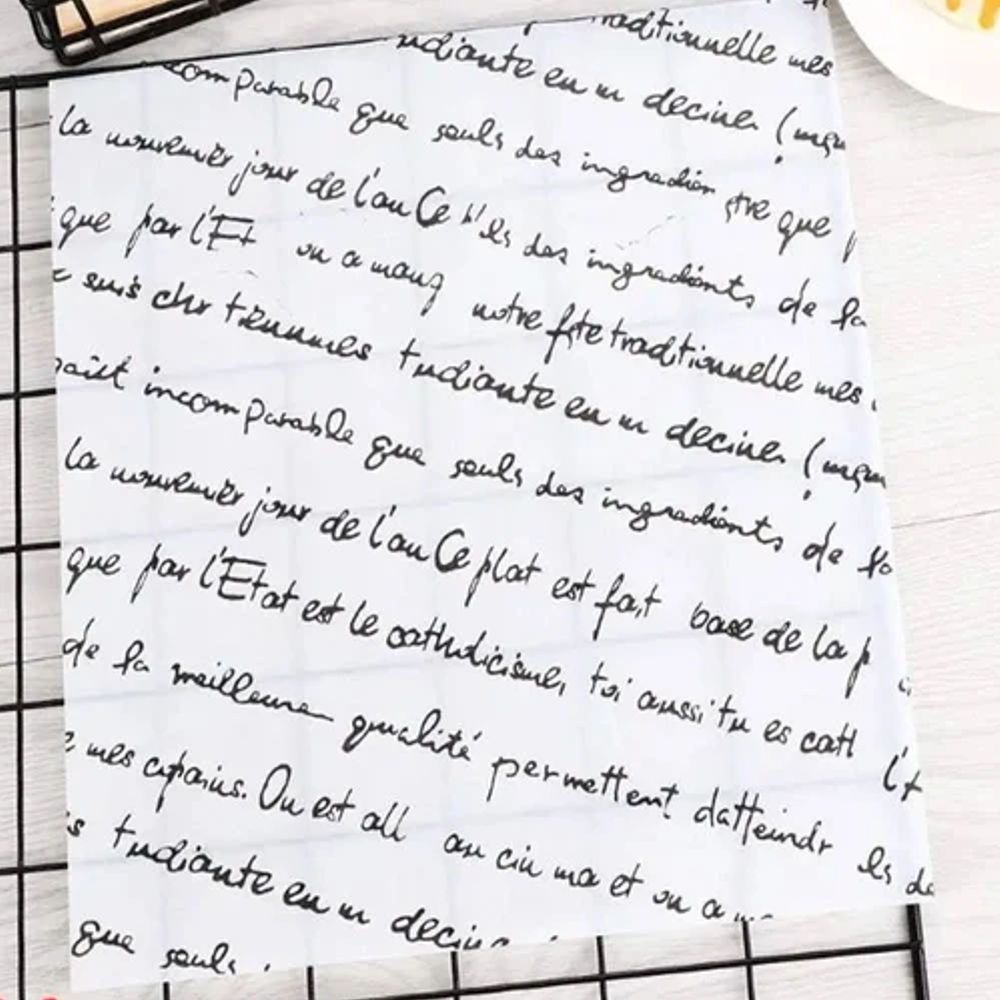 traditionnelle mes
udiante en m decine (
comparable que seuls des ingredien que
La jour de l'an Ce des ingrediants de la
que par l'Et on a mang notre fete traditionnelle mes
suis chr tiennes tudiante en m decine (
incomparable que seuls des ingrediants de
La jour de l'an Ce plat est fait base de la p
que par l'Etat est le catholicisme, toi aussi tu es cath l'
de la meilleure qualité permettent datteindr els de
mes copains. On est all au cin ma et on a
tudiante en m decine
que seuls